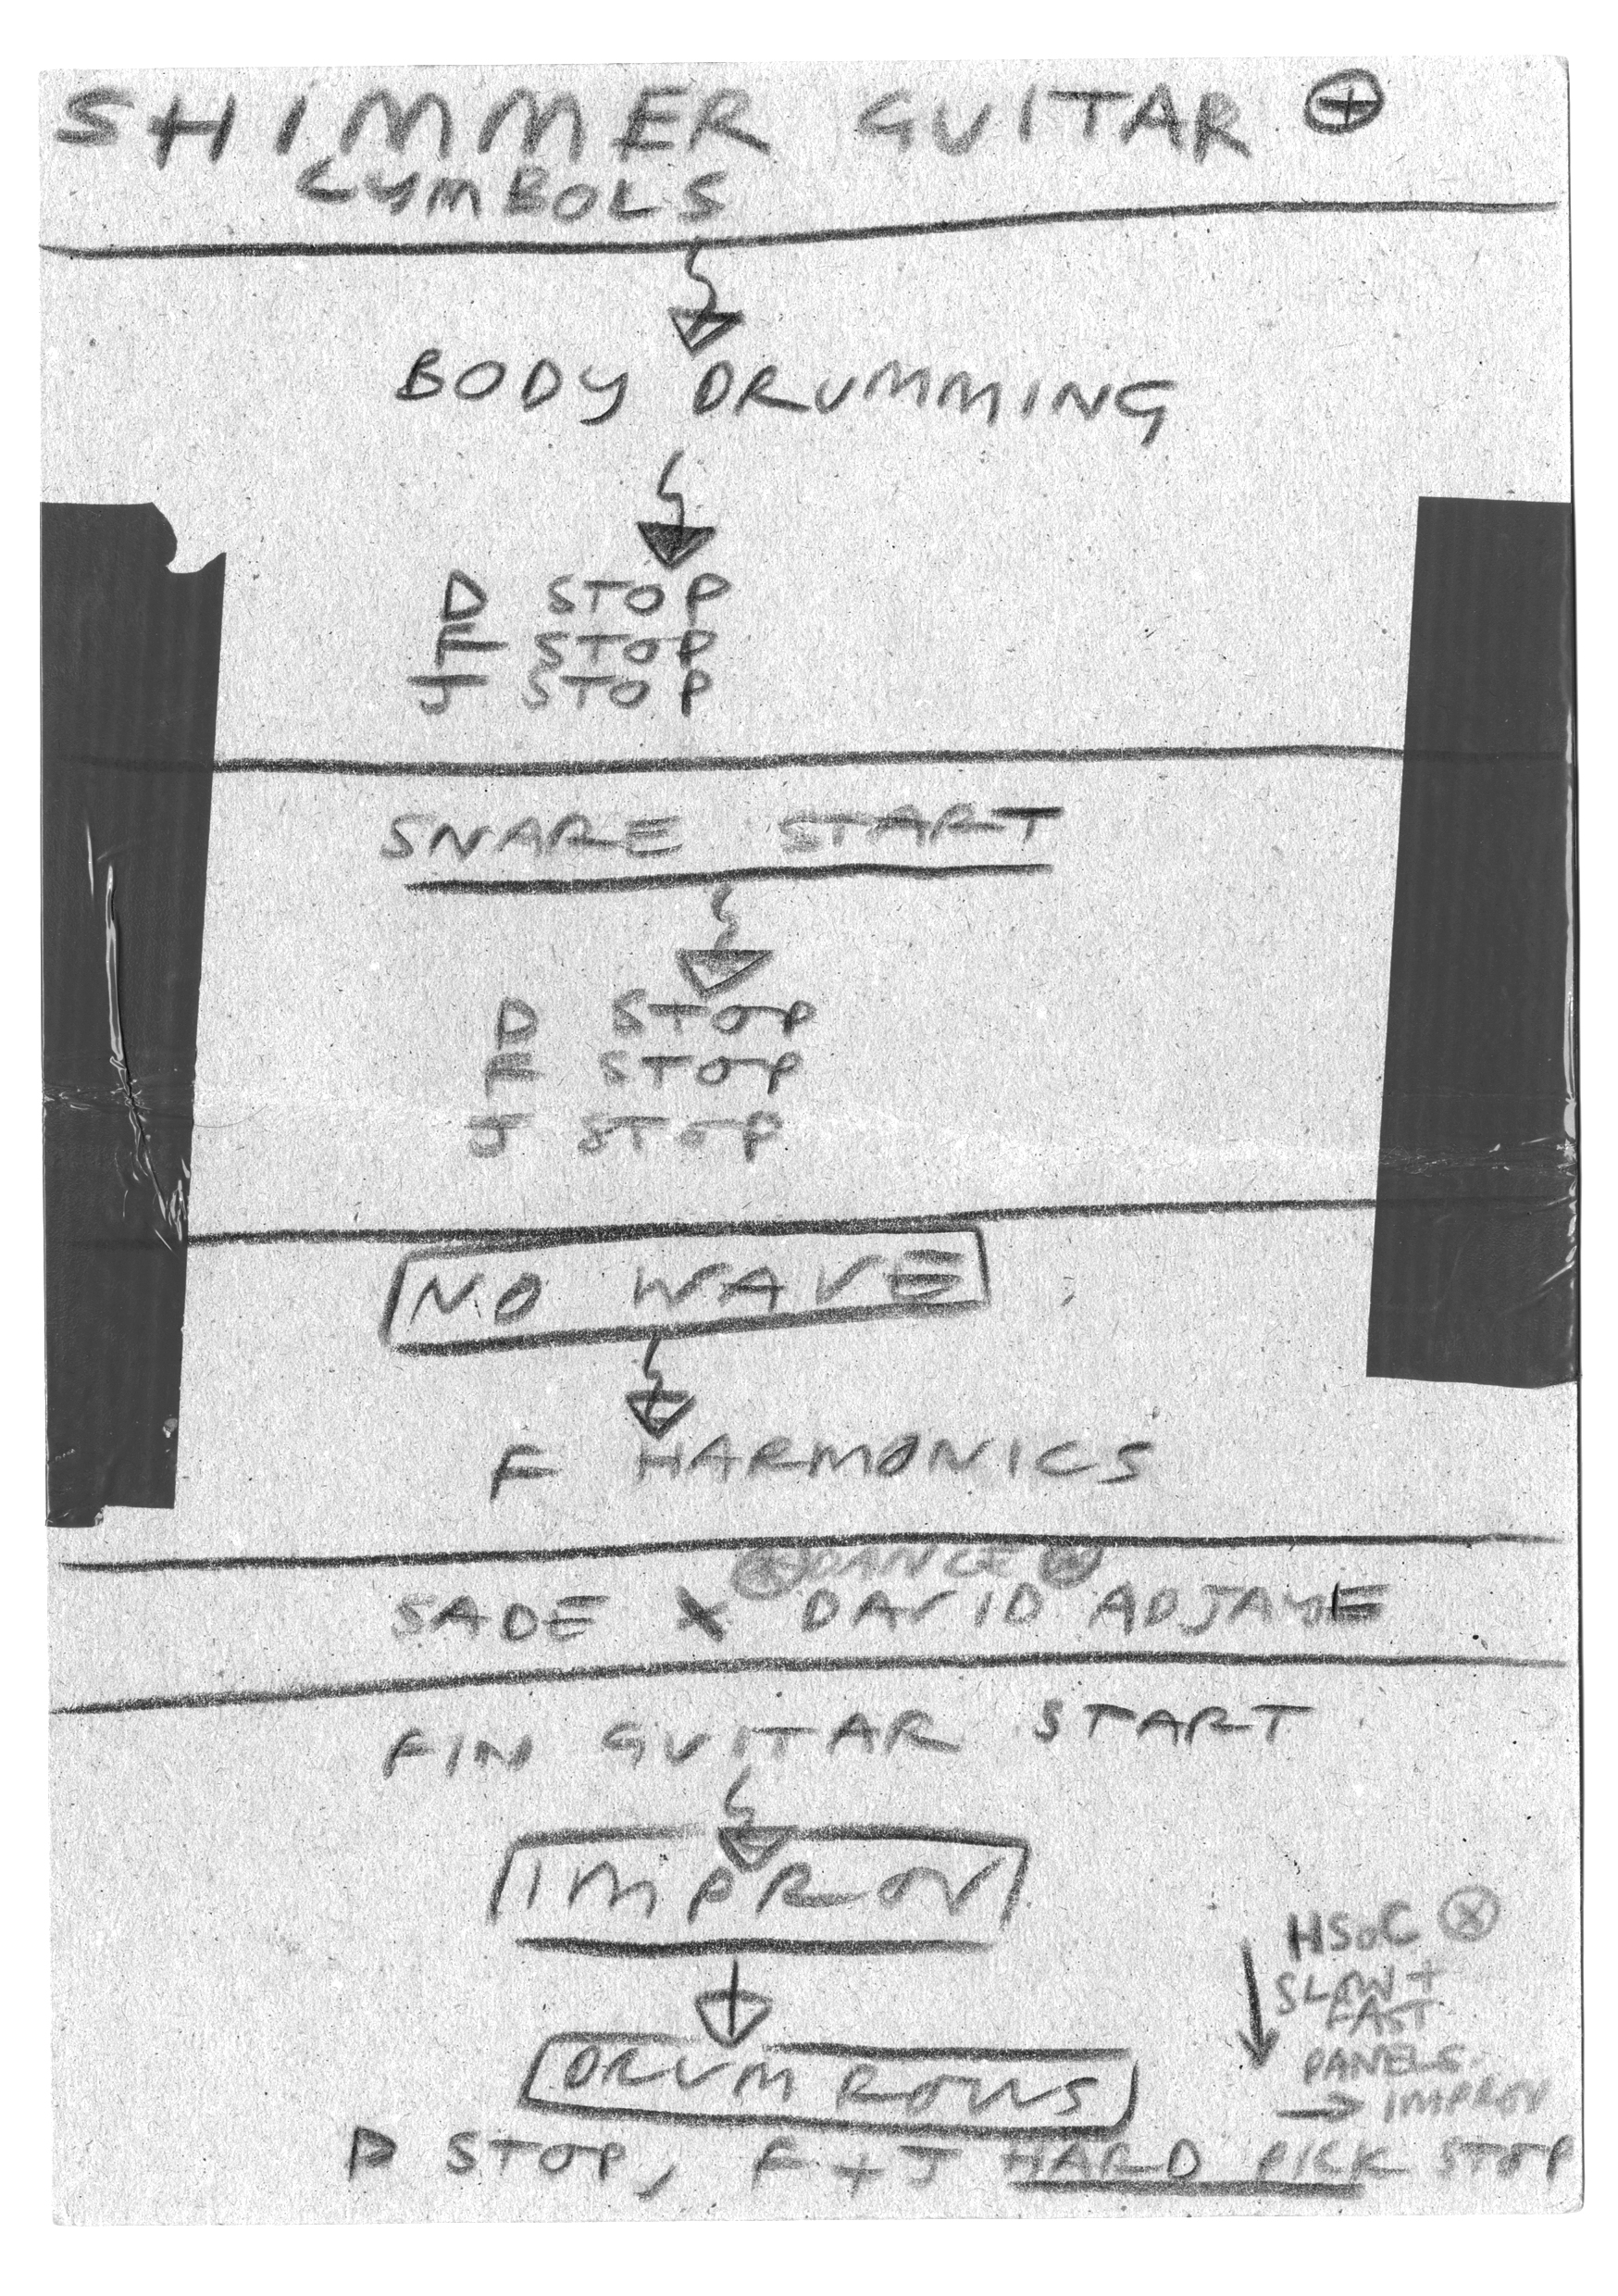 SHIMMER GUITAR ⊕
CYMBOLS
BODY DRUMMING
D STOP
F STOP
J STOP
SNARE START
D STOP
F STOP
J STOP
NO WAVE
F HARMONICS
DANCE
SADE X DAVID ADJAYE
FIN GUITAR START
IMPROV
DRUM ROWS
HSoC ⊗
SLOW +
FAST
PANELS
→ IMPROV
D STOP, F + J HARD PICK STOP